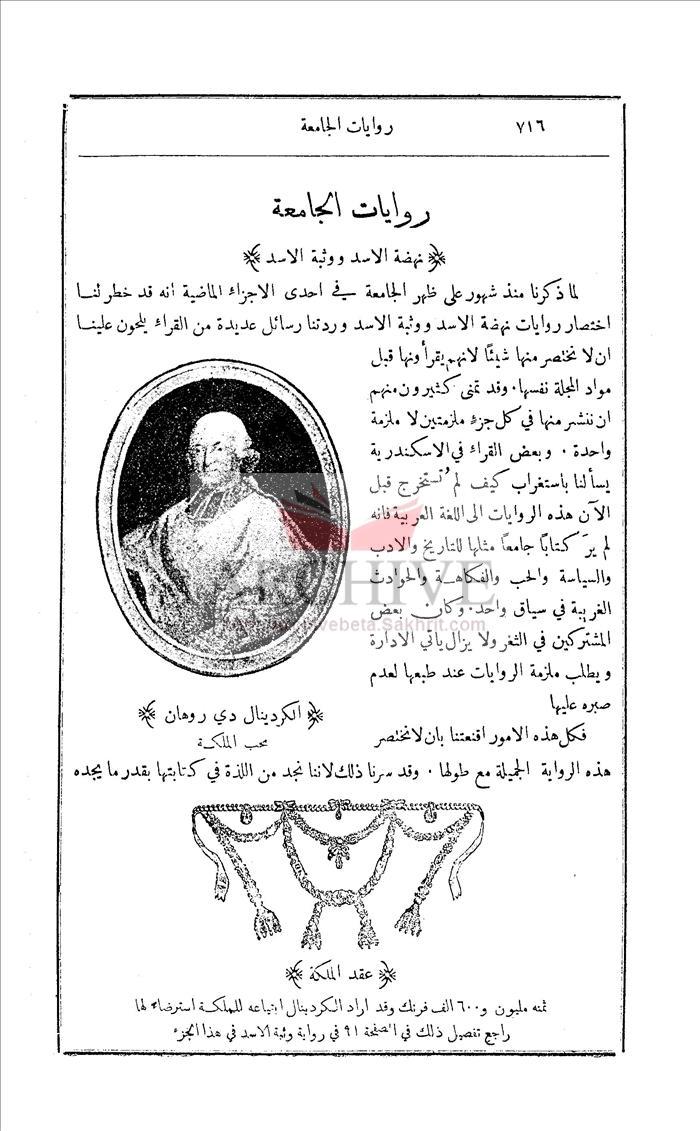 ٧١٦
روايات الجامعة
روايات الجامعة
نهضة الاسد ووثبة الاسد
لما ذكرنا منذ شهور على ظهر الجامعة في احدى الاجزاء الماضية انه قد خطر لنا
اختصار روايات نهضة الاسد ووثبة الاسد وردتنا رسائل عديدة من القراء يلحون علينا
ان لا نختصر منها شيئًا لانهم يقرأونها قبل
مواد المجلة نفسها. وقد تمنى كثيرون منهم
ان ننشر منها في كل جزء ملزمتين لا ملزمة
واحدة. وبعض القراء في الاسكندرية
يسألنا باستغراب كيف لم تستخرج قبل
الآن هذه الروايات الى اللغة العربية فانه
لم يرَ كتابًا جامعًا مثلها للتاريخ والادب
والسياسة والحب والفكاهة والحوادث
الغريبة في سياق واحد. وكان بعض
المشتركين في الثغر ولا يزال ياتي الادارة
ويطلب ملزمة الروايات عند طبعها لعدم
صبره عليها
فكل هذه الامور اقنعتنا بان لا نختصر
هذه الرواية الجميلة مع طولها. وقد سرنا ذلك لاننا نجد من اللذة في كتابتها بقدر ما يجده
الكردينال دي روهان
محب الملكة
عقد الملكة
ثمنه مليون و٦٠٠ الف فرنك وقد اراد الكردينال ابتياعه للملكة استرضاءً لها
راجع تفصيل ذلك في الصفحة ٩١ في رواية وثبة الاسد في هذا الجزء
ARCHIVE